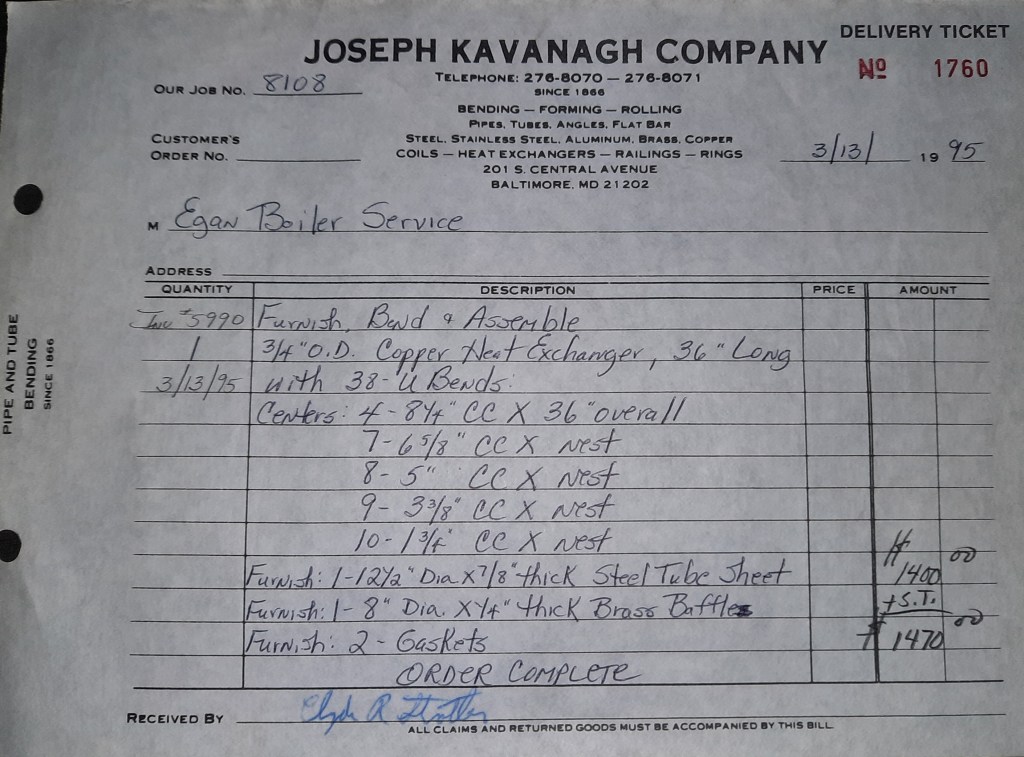 DELIVERY TICKET
JOSEPH KAVANAGH COMPANY
Nº 1760
TELEPHONE: 276-8070 — 276-8071
SINCE 1866
OUR JOB NO. 8108
BENDING — FORMING — ROLLING
PIPES, TUBES, ANGLES, FLAT BAR
CUSTOMER'S
ORDER NO.
STEEL, STAINLESS STEEL, ALUMINUM, BRASS, COPPER
COILS — HEAT EXCHANGERS — RAILINGS — RINGS
3/13/ 19 95
201 S. CENTRAL AVENUE
BALTIMORE, MD 21202
M Egan Boiler Service
ADDRESS
QUANTITY DESCRIPTION PRICE AMOUNT
Inv #5990 Furnish, Bend & Assemble
1 3/4" O.D. Copper Heat Exchanger, 36" Long
3/13/95 with 38-U Bends:
Centers: 4 - 8 1/4" CC X 36" overall
7 - 6 5/8" CC X nest
8 - 5" CC X nest
9 - 3 3/8" CC X nest
10 - 1 3/4" CC X nest
Furnish: 1 - 12 1/2" Dia X 7/8" thick Steel Tube Sheet # 1400 00
Furnish: 1 - 8" Dia. X 1/4" thick Brass Baffles +S.T.
Furnish: 2 - Gaskets # 1470 00
ORDER COMPLETE
RECEIVED BY Clyde R
ALL CLAIMS AND RETURNED GOODS MUST BE ACCOMPANIED BY THIS BILL
PIPE AND TUBE
BENDING
SINCE 1866